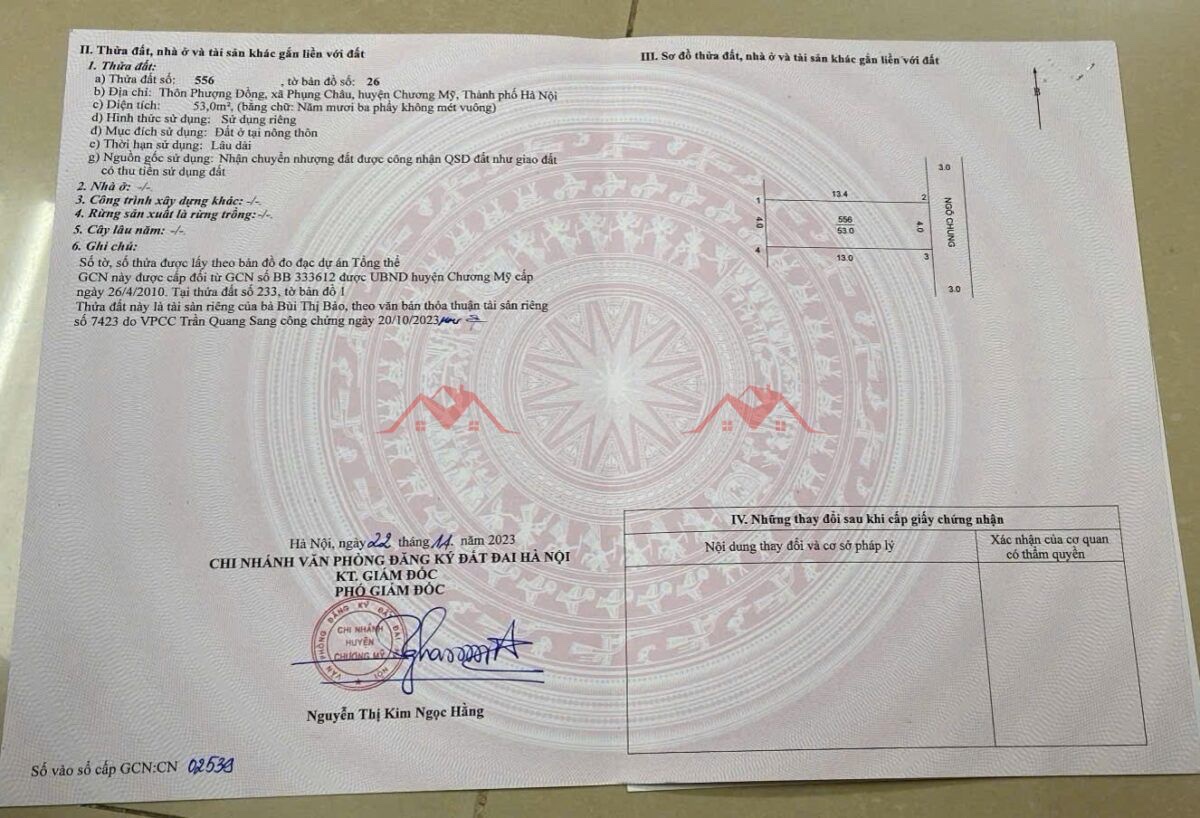 II. Thửa đất, nhà ở và tài sản khác gắn liền với đất
1. Thửa đất:
a) Thửa đất số: 556 , tờ bản đồ số: 26
b) Địa chỉ: Thôn Phượng Đồng, xã Phụng Châu, huyện Chương Mỹ, Thành phố Hà Nội
c) Diện tích: 53,0m², (bằng chữ: Năm mươi ba phẩy không mét vuông)
d) Hình thức sử dụng: Sử dụng riêng
đ) Mục đích sử dụng: Đất ở tại nông thôn
e) Thời hạn sử dụng: Lâu dài
g) Nguồn gốc sử dụng: Nhận chuyển nhượng đất được công nhận QSD đất như giao đất
có thu tiền sử dụng đất
2. Nhà ở: -/-.
3. Công trình xây dựng khác: -/-.
4. Rừng sản xuất là rừng trồng: -/-.
5. Cây lâu năm: -/-.
6. Ghi chú:
Số tờ, số thửa được lấy theo bản đồ đo đạc dự án Tổng thể
GCN này được cấp đổi từ GCN số BB 333612 được UBND huyện Chương Mỹ cấp
ngày 26/4/2010. Tại thửa đất số 233, tờ bản đồ 1
Thửa đất này là tài sản riêng của bà Bùi Thị Bảo, theo văn bản thỏa thuận tài sản riêng
số 7423 do VPCC Trần Quang Sang công chứng ngày 20/10/2023
Hà Nội, ngày 22 tháng 11 năm 2023
CHI NHÁNH VĂN PHÒNG ĐĂNG KÝ ĐẤT ĐAI HÀ NỘI
KT. GIÁM ĐỐC
PHÓ GIÁM ĐỐC
VĂN PHÒNG ĐĂNG KÝ ĐẤT ĐAI HÀ NỘI
CHI NHÁNH
HUYỆN
CHƯƠNG MỸ
Nguyễn Thị Kim Ngọc Hằng
Số vào sổ cấp GCN:CN 02539
III. Sơ đồ thửa đất, nhà ở và tài sản khác gắn liền với đất
B
3.0
1
13.4
2
4.0
556
53.0
4.0
NGÕ CHUNG
4
13.0
3
3.0
IV. Những thay đổi sau khi cấp giấy chứng nhận
Nội dung thay đổi và cơ sở pháp lý
Xác nhận của cơ quan
có thẩm quyền